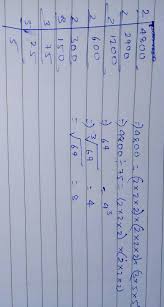 2 | 4800
2 | 2400
2 | 1200
2 | 600
2 | 300
2 | 150
3 | 75
5 | 25
5
⇒ 4800 = (2×2×2)×(2×2×2)×(3×5×5
⇒ 4800÷75 = (2×2×2)×(2×2×2)
⇒ 64 = 4³
⇒ ∛64 = 4
= √64 = 8